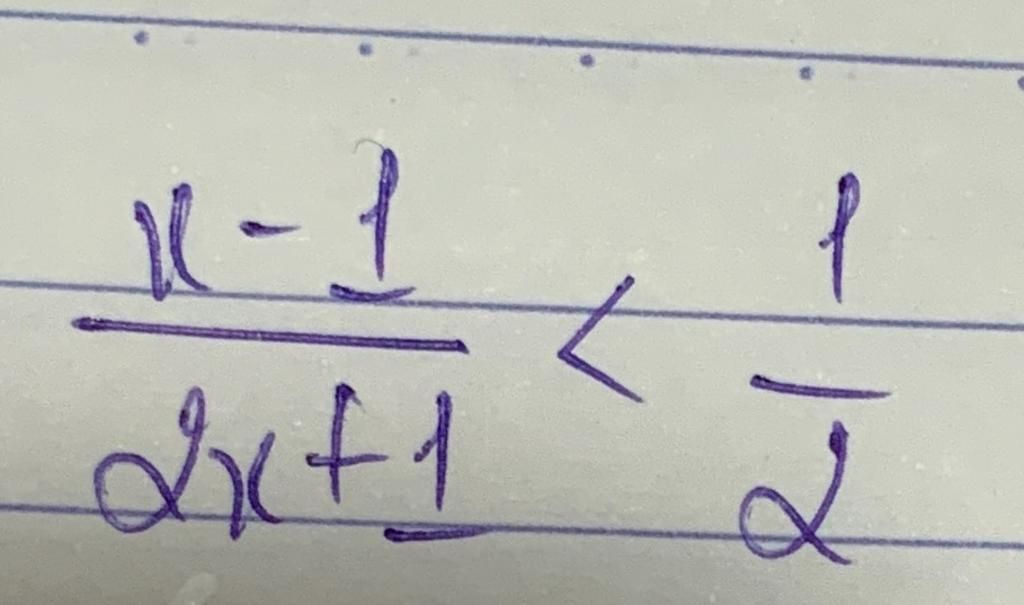 x - 1 / 2x + 1 < 1 / 2